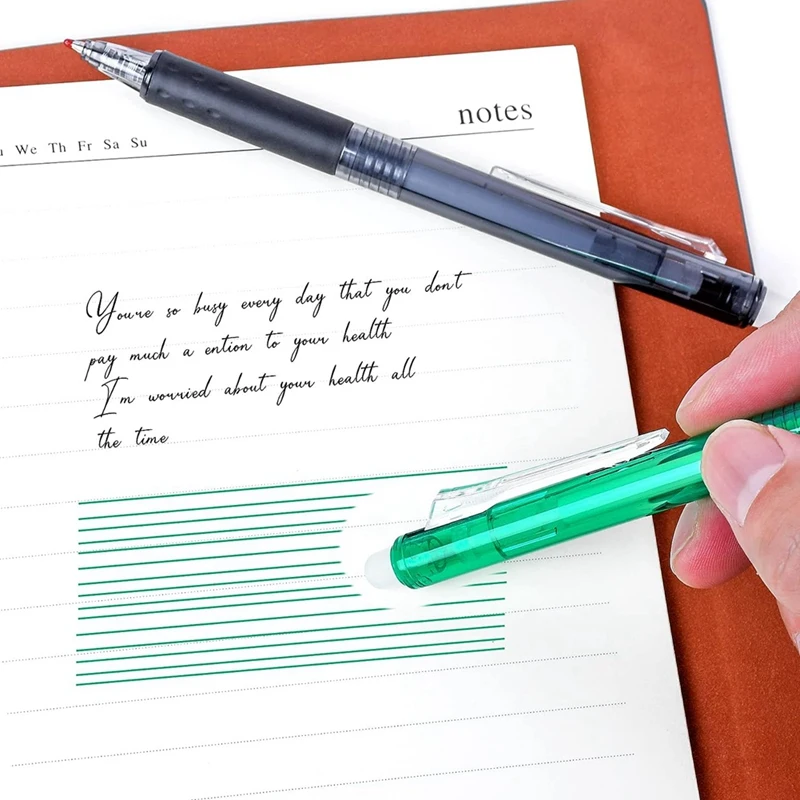 notes
We Th Fr Sa Su
Youre so busy every day that you don't
pay much a ention to your health
I'm worried about your health all
the time